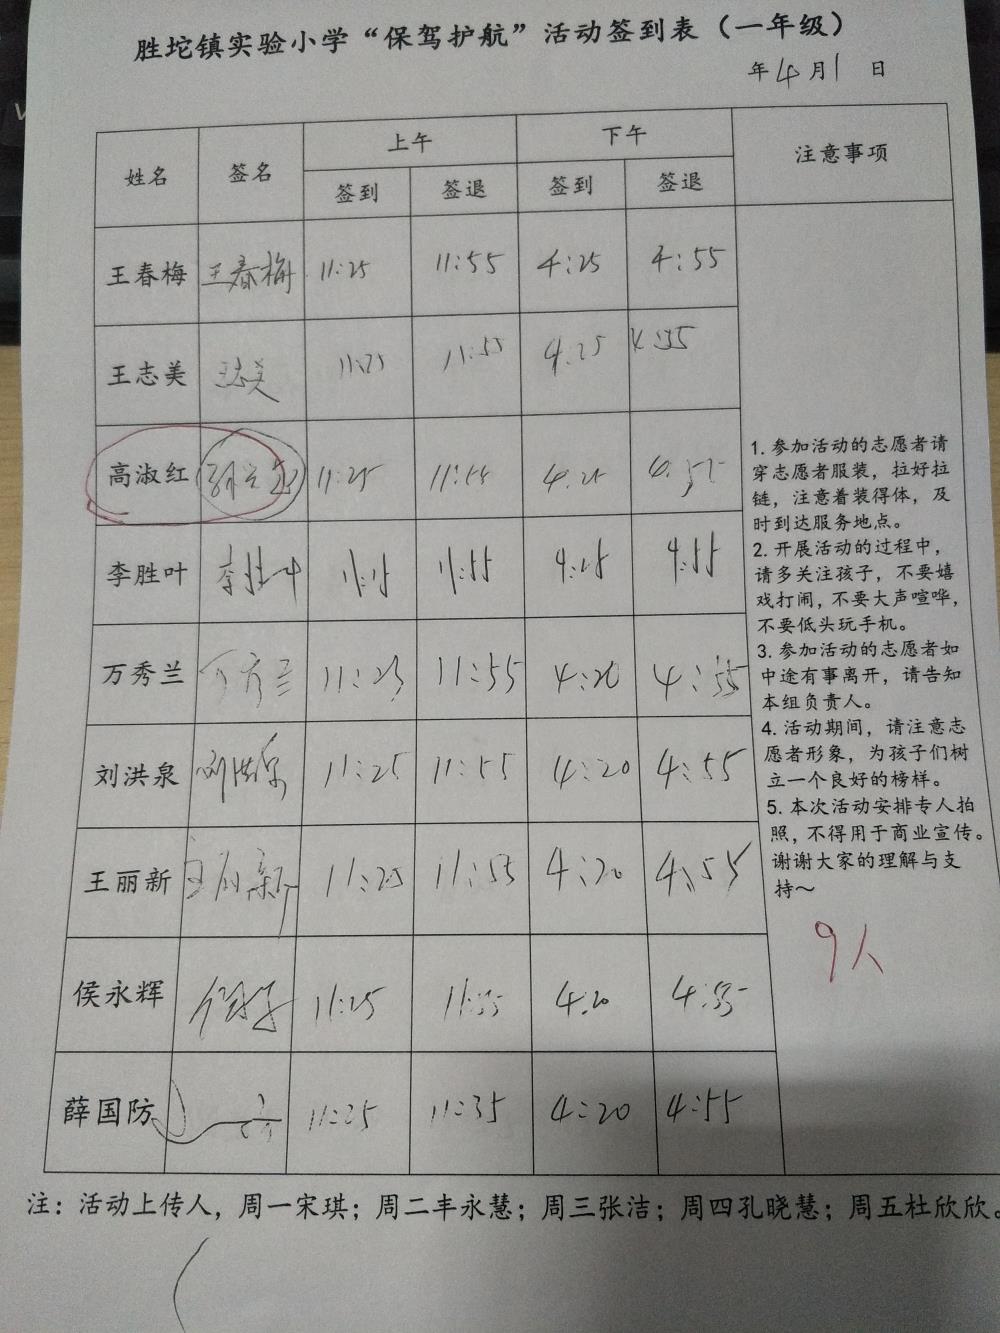 胜坨镇实验小学“保驾护航”活动签到表（一年级）
年4月1日
姓名 签名 上午 下午 注意事项
签到 签退 签到 签退
王春梅 王春梅 11:25 11:55 4:25 4:55
王志美 王志美 11:25 11:55 4:25 4:55
高淑红 11:25 11:55 4:25 4:55
李胜叶 李胜叶 11:25 11:55 4:25 4:55
万秀兰 万秀兰 11:25 11:55 4:20 4:55
刘洪泉 刘洪泉 11:25 11:55 4:20 4:55
王丽新 王丽新 11:25 11:55 4:20 4:55
侯永辉 11:25 11:55 4:20 4:55
薛国防 11:25 11:35 4:20 4:55
1. 参加活动的志愿者请
穿志愿者服装，拉好拉
链，注意着装得体，及
时到达服务地点。
2. 开展活动的过程中，
请多关注孩子，不要嬉
戏打闹，不要大声喧哗，
不要低头玩手机。
3. 参加活动的志愿者如
中途有事离开，请告知
本组负责人。
4. 活动期间，请注意志
愿者形象，为孩子们树
立一个良好的榜样。
5. 本次活动安排专人拍
照，不得用于商业宣传。
谢谢大家的理解与支
持～
9人
注：活动上传人，周一宋琪；周二丰永慧；周三张洁；周四孔晓慧；周五杜欣欣。